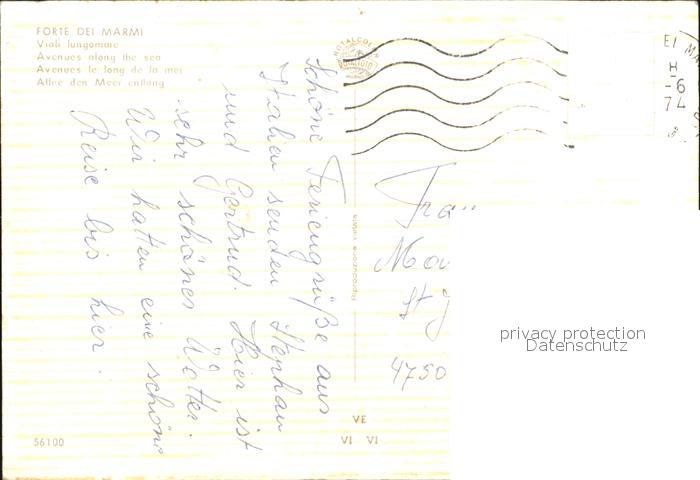 FORTE DEI MARMI
Viali lungomare
Avenues along the sea
Avenues le long de la mer
Allee den Meer entlang
Schöne Feriengrüße aus
Italien senden Stephan
und Gertrud. Hier ist
sehr schönes Wetter.
Wir hatten eine schöne
Reise bis hier.
EI MA
H
-6
74
4750
Riproduzione vietata
privacy protection
Datenschutz
VE
VI VI
56100